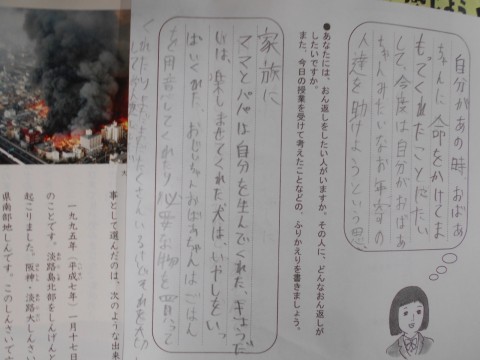 自分があの時おばあ
ちゃんに命をかけてま
もってくれたことにたい
して、今度は自分がおばあ
ちゃんみたいなお年寄の
人達を助けようという思
●あなたには、おん返しをしたい人がいますか。その人に、どんなおん返しが
したいですか。
また、今日の授業を受けて考えたことなどの、ふりかえりを書きましょう。
家族に
ママとパパは自分を生んでくれた、きょうだ
いは、楽しませてくれた犬は、いやしをいっ
ぱいくれた、おじいちゃんおばあちゃんはごはん
を用意してくれたり必要な物を買って
くれたり
事として選んだのは、次のような出来
一九九五年（平成七年）一月十七日
のことです。淡路島北部をしんげんと
起こりました。阪神・淡路大しんさい
県南部地しんです。このしんさいで